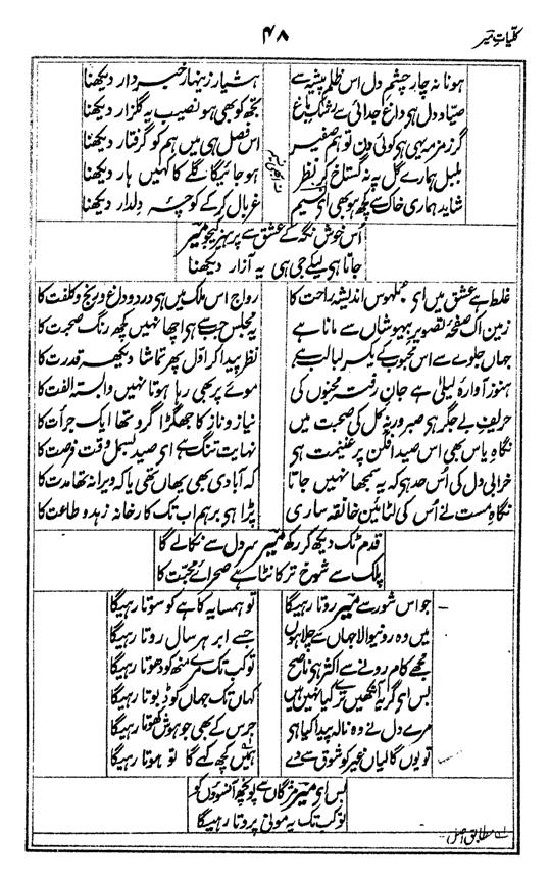 کلیاتِ میر
۴۸
ہونا نہ چار چشم دل اس ظلم پیشہ سے ہشیار زینہار خبردار دیکھنا
صیاد دل ہی داغِ جدائی سے رشکِ باغ تجھ کو بھی ہو نصیب یہ گلزار دیکھنا
گر زمزمہ یہی ہی کوئی دن تو ہم صفیر اس فصل ہی میں ہم کو گرفتار دیکھنا
بلبل ہمارے گل پہ نہ گستاخ کر نظر ہو جائیگا گلے کا کہیں ہار دیکھنا
شاید ہماری خاک سے کچھ ہو بھی ای نسیم غربال کر کے کوچۂ دلدار دیکھنا
اُس خوش نگہ کے عشق سے پرہیز کیجو میر
جاتا ہی لیکے جی ہی یہ آزار دیکھنا
غلط ہے عشق میں ای بوالہوس اندیشہ راحت کا رواج اس ملک میں ہی درد و داغ و رنج و کلفت کا
زمین اک صفحۂ تصویر بیہوشاں سے مانا ہے یہ مجلس جب سے ہی اچھا نہیں کچھ رنگ صحبت کا
جہاں جلوے سے اس محبوب کے یکسر لبالب ہے نظر پیدا کر اول پھر تماشا دیکھ قدرت کا
ہنوز آوارۂ لیلیٰ ہے جانِ رفتہ مجنوں کی موئے پر بھی رہا ہوتا نہیں وابستہ الفت کا
حریفِ بے جگر ہی صبر ورنہ کل کی صحبت میں نیاز و ناز کا جھگڑا گرو تھا ایک جرأت کا
نگاہِ یاس بھی اس صید افگن پر غنیمت ہی نہایت تنگ ہے ای صید بسمل وقت فرصت کا
خرابی دل کی اُس حد ہی کہ یہ سمجھا نہیں جاتا کہ آبادی بھی یھاں تھی یا کہ ویرانہ تھا مدت کا
نگاہِ مست نے اُس کی لٹائی خانقہ ساری پڑا ہی برہم اب تک کارخانہ زہد و طاعت کا
قدم ٹک دیکھ کر رکھ میر سر دل سے نکالے گا
پلک سے شوخ تر کانٹا ہے صحرائے محبت کا
جو اس شور سے میر روتا رہیگا تو ہمسایہ کاہے کو سوتا رہیگا
میں وہ رونیوالا جہاں سے چلا ہوں جسے ابر ہر سال روتا رہیگا
مجھے کام رونے سے اکثر ہی ناصح تو کب تک مرے منھ کو دھوتا رہیگا
بس ای گریہ آنکھیں ترے کیا نہیں ہیں کہاں تک جہاں کو ڈبوتا رہیگا
مرے دل نے وہ نالہ پیدا کیا ہی جرس کے بھی جو ہوش کھوتا رہیگا
تو یوں گالیاں غیر کو شوق سے دے ہمیں کچھ کہے گا تو ہوتا رہیگا
بس ای میر مژگاں سے پونچھ آنسوؤں کو
تو کب تک یہ موتی پروتا رہیگا
مطابق اصل